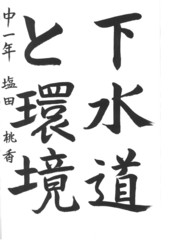 下水道
と環境
中一年 塩田 桃香